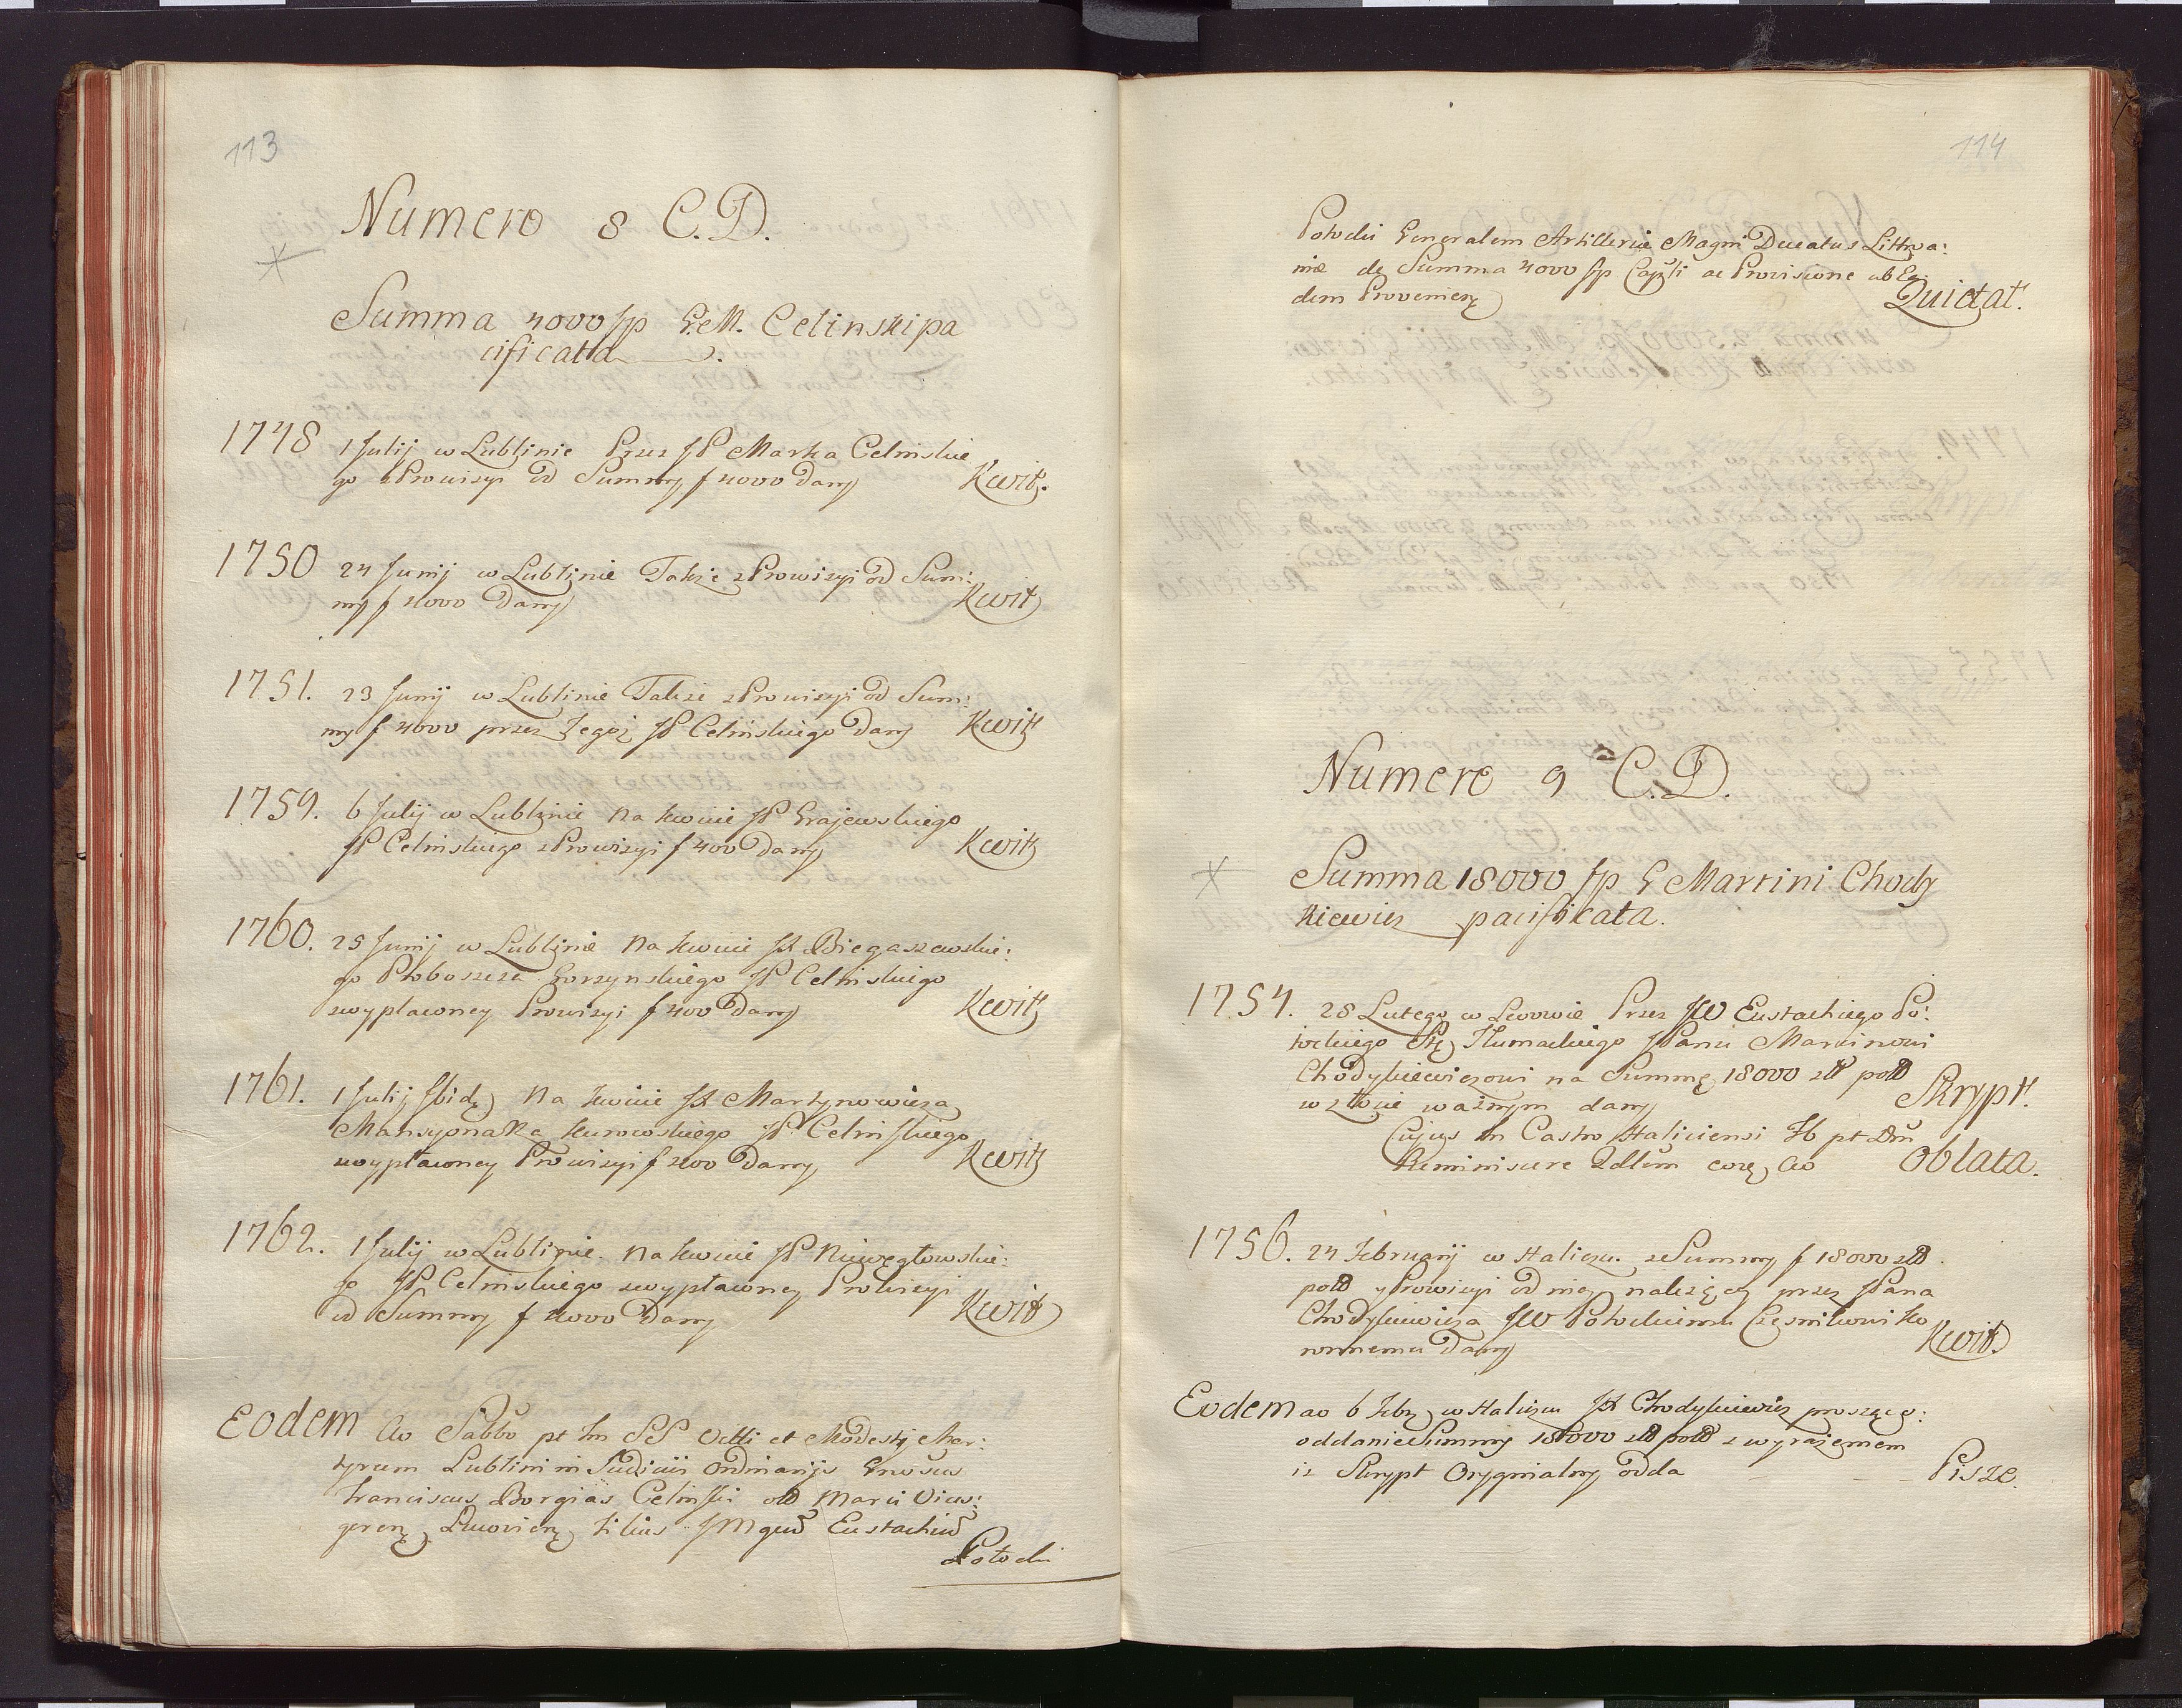 113
Numero 8 C.D.
Summa 4000 fp G. M. Celinski pa
cificata
1748 1 Julij w Lublinie Przez JP Marka Celinskie
go z Prowizyi od Summy f 4000 Dany Kwit.
1750 24 Junij w Lublinie Takze z Prowizyi od Sum:
my f 4000 Dany Kwit
1751. 23 Junij w Lublinie Takze z Prowizyi od Sum:
my f 4000 przez Tegoż JP Celinskiego Dany Kwit
1759. 6 Julij w Lublinie Na kwicie JP Grajewskiego
JP Celinskiego z Prowizyi f 400 Dany Kwit
1760. 25 Junij w Lublinie Na kwicie JX Biegaszewskie:
go Proboszcza Gorzynskiego JP Celinskiego
zwypłaconey Prowizyi f 400 Dany Kwit
1761. 1 Julij Ibidę Na kwicie JX Martynowicza
Mansyonarza Kurowskiego JP Celinskiego
zwypłaconey Prowizyi f 200 Dany Kwit
1762. 1 Julij w Lublinie Na kwicie JP Niwęgłowskie:
go JP Celinskiego zwypłaconey Prowizyi
od Summy f 4000 Dany Kwit
Eodem Ao Sabbo pt fm SS Vitti et Modesti Mar:
tyrum Lublini in Judicijs Ordinarijs Gnosus
Franciscus Borgias Celinski olo Marci Vices:
gerenę Lucovienę filius JMgum Eustachium
Potocki
114
Potocki Generalem Artilleriæ Magni Ducatus Littva:
niæ de Summa 4000 fp Capli ac Provisione ab Ea:
dem Provenienę Quietat.
Numero 9 C.D.
Summa 18000 fp G Martini Chody
kiewicz pacificata.
1754. 28 Lutego w Lwowie Przez JW Eustachiego Po:
tockiego Stę Tłumackiego JPanu Marcinowi
Chodykiewiczowi na Summę 18000 złt pol
w złocie ważnym dany Skrypt.
Cujus in Castro Haliciensi fb pt Dm
Reminiscere Qdlm eorę Ao Oblata.
1756. 24 Februarij w Haliczu z Summy f 18000 zł
pol y Prowizyi od niey należącey przez JPana
Chodykiewicza JW Potockiemu Czesnikowi Ko
ronnemu Dany Kwit.
Eodem ao 6 Febr w Haliczu JX Chodykiewicz prosząc o:
oddanie Summy 18000 zł pol z wyrażeniem
iz Skrypt Oryginalny odda Pisze.